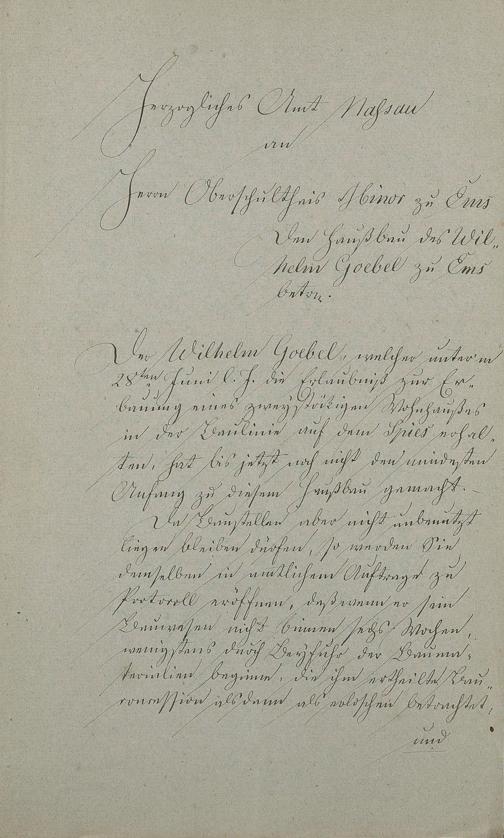 Herzogliches Amt Nassau
an
Herrn Oberschultheis Minor zu Ems
Den Haußbau des Wil-
helm Goebel zu Ems
betr.
Der Wilhelm Goebel, welcher unterm
28ten Juni l. J. die Erlaubniß zur Er-
bauung eines zweystöckigen Wohnhaußes
in der Baulinie auf dem Spies erhal-
ten, hat bis jetzt noch nicht den mindesten
Anfang zu diesem Haußbau gemacht. –
Da Baustellen aber nicht unbenutzt
liegen bleiben dürfen, so werden Sie
demselben in amtlichem Auftrage zu
Protocoll eröffnen, daß wenn er sein
Bauwesen nicht binnen sechs Wochen,
wenigstens durch Beyfuhr der Bauma-
terialien beginne, die ihm ertheilte Bau-
concession alsdann als erloschen betrachtet,
und